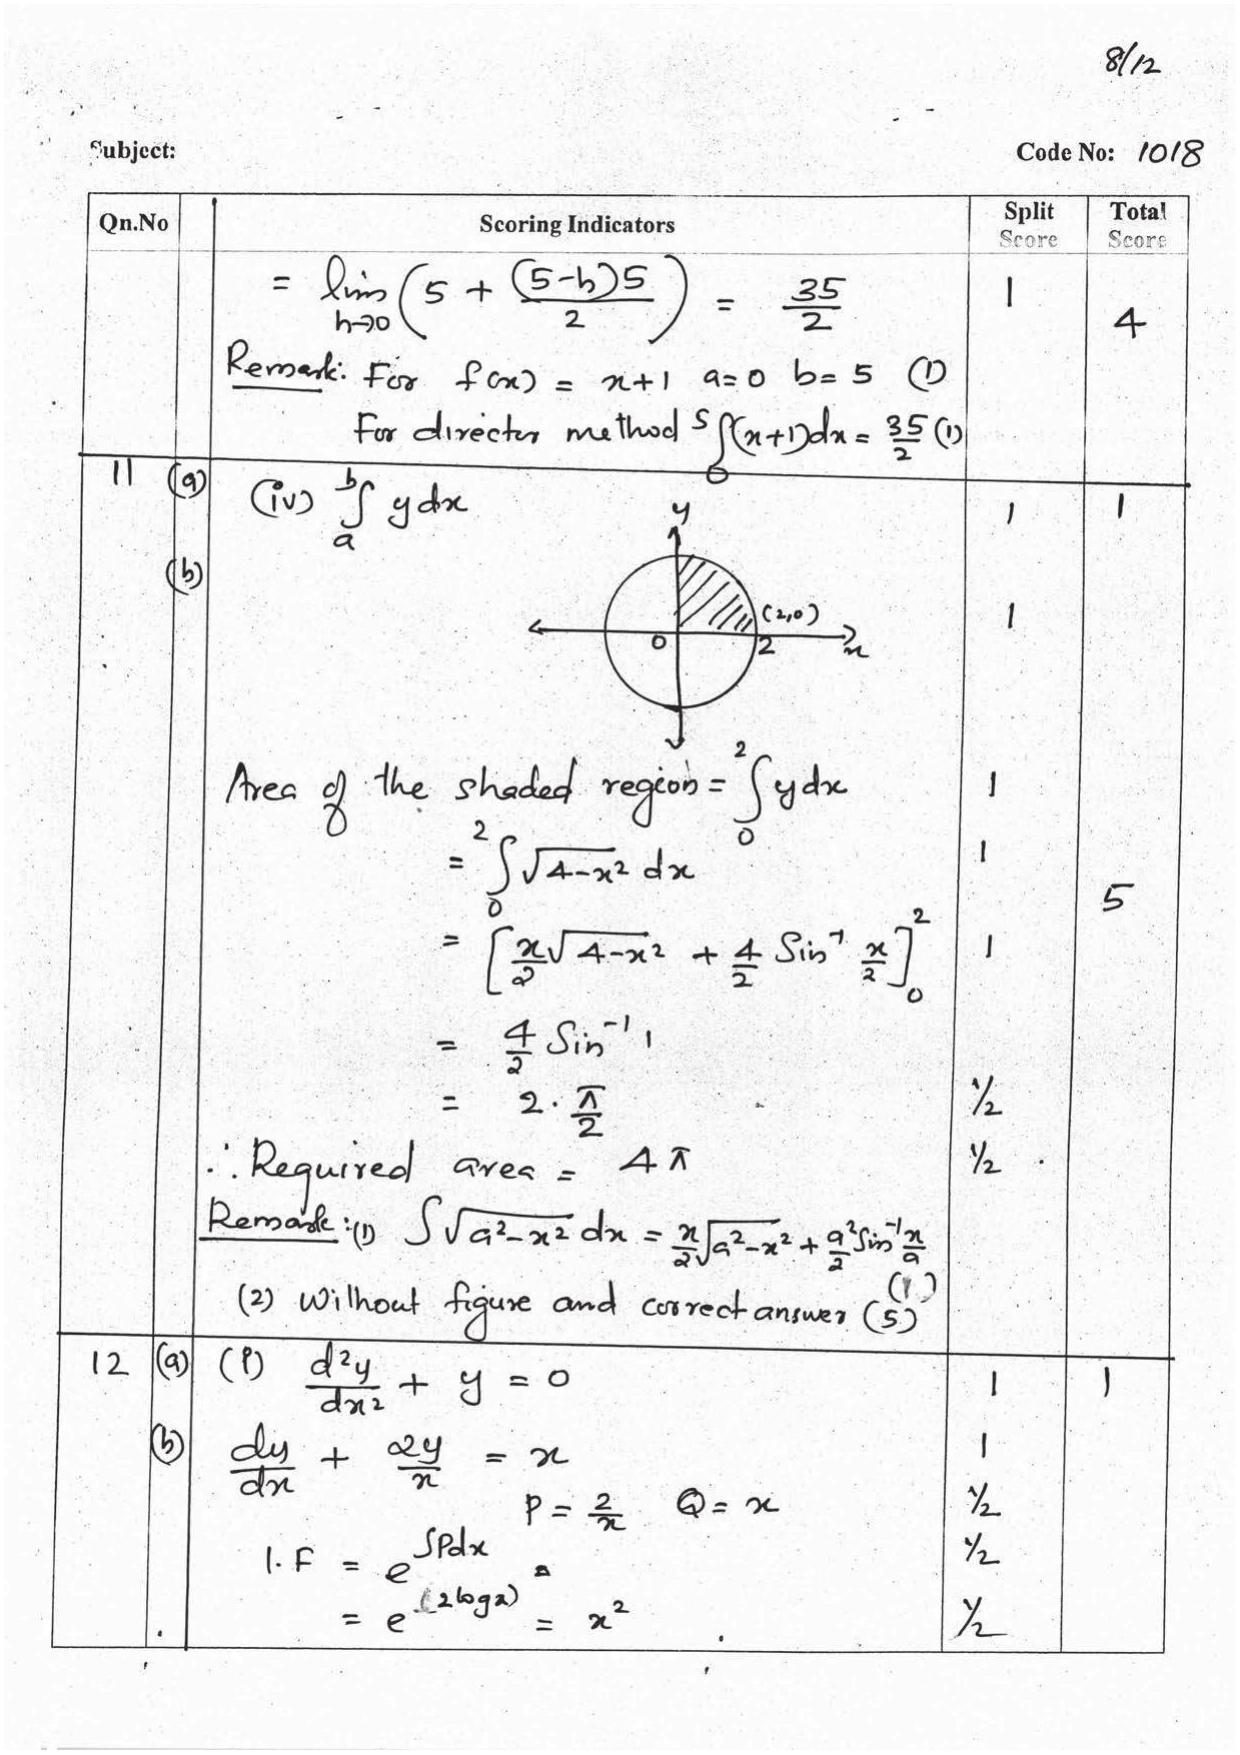 8/12
Subject: Code No: 1018
Qn.No Scoring Indicators Split Score Total Score
= lim h→0 (5 + (5-h)5/2) = 35/2 1 4
Remark: For f(x) = x+1 a=0 b=5 (1)
For director method ∫₀⁵(x+1)dx = 35/2 (1)
11 (a) (iv) ∫ₐᵇ y dx 1 1
(b) y
(2,0) 1
0 2 x
Area of the shaded region = ∫₀² y dx 1
= ∫₀² √4-x² dx 1
5
= [x/2 √4-x² + 4/2 Sin⁻¹ x/2]₀² 1
= 4/2 Sin⁻¹ 1
= 2 . π/2 1/2
∴ Required area = 4π 1/2
Remark: (1) ∫√a²-x² dx = x/2 √a²-x² + a²/2 Sin⁻¹ x/a
(1)
(2) Without figure and correct answer (5)
12 (a) (i) d²y/dx² + y = 0 1 1
(b) dy/dx + 2y/x = x 1
P = 2/x Q = x 1/2
I.F = e^∫Pdx = 1/2
= e^(2logx) = x² 1/2